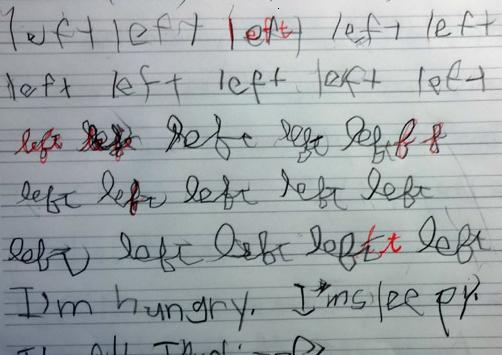 left left left left left
left left left left left
left left left left leffff
left left left left left
left left left leftt left
I'm hungry. I'm sleepy.